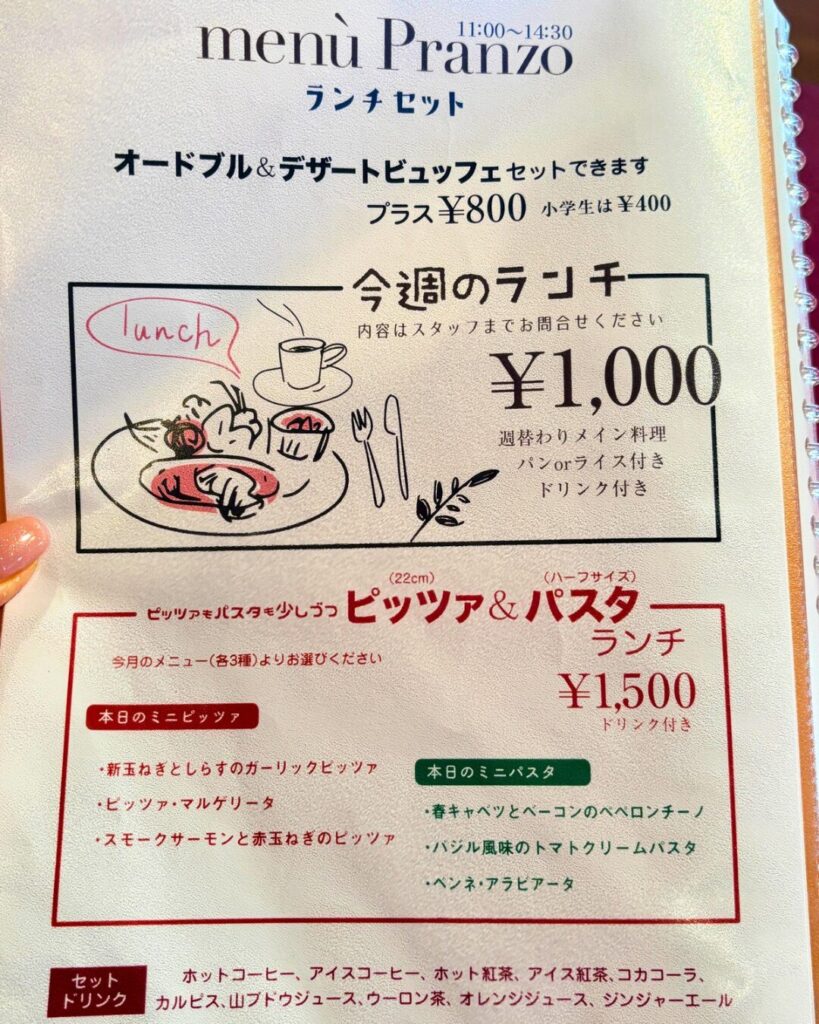 11:00〜14:30
menù Pranzo
ランチセット
オードブル&デザートビュッフェセットできます
プラス¥800 小学生は¥400
今週のランチ
内容はスタッフまでお問合せください
lunch
¥1,000
週替わりメイン料理
パンorライス付き
ドリンク付き
(22cm) (ハーフサイズ)
ピッツァもパスタも少しづつ ピッツァ&パスタ
ランチ
今月のメニュー(各3種)よりお選びください
¥1,500
ドリンク付き
本日のミニピッツァ
・新玉ねぎとしらすのガーリックピッツァ
・ピッツァ・マルゲリータ
・スモークサーモンと赤玉ねぎのピッツァ
本日のミニパスタ
・春キャベツとベーコンのペペロンチーノ
・バジル風味のトマトクリームパスタ
・ペンネ・アラビアータ
セット
ドリンク
ホットコーヒー、アイスコーヒー、ホット紅茶、アイス紅茶、コカコーラ、
カルピス、山ブドウジュース、ウーロン茶、オレンジジュース、ジンジャーエール